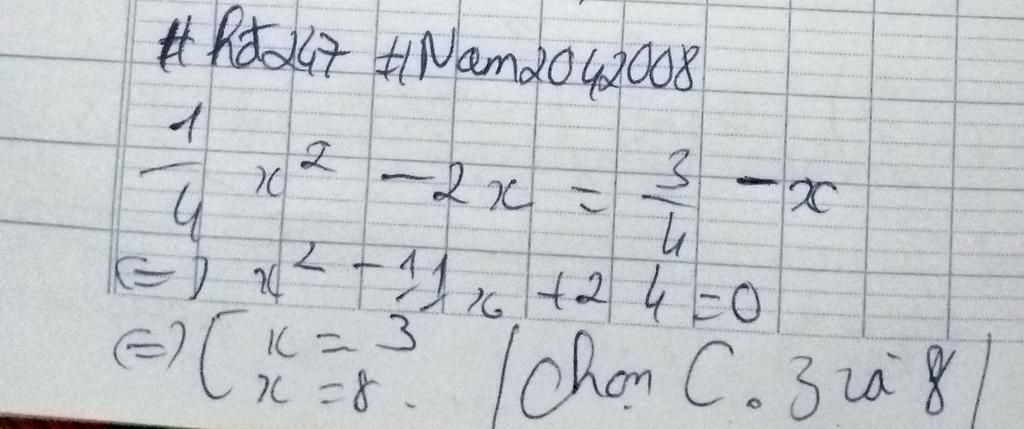 # hd247 #Nam2042008
1/4 x² - 2x = 3/4 - x
(=) x² - 11x + 24 = 0
(=) [ x = 3
x = 8. / Chọn C. 3 và 8 /